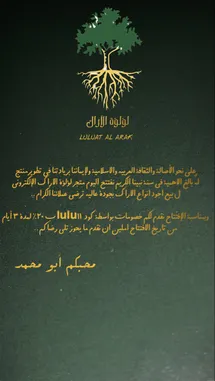 لؤلؤة الأراك
LULUAT AL ARAK
على نحو الأصالة والثقافة العربيه والاسلامية ولإيماننا بريادتنا في تطوير منتج
له بالغ الاهمية في سنة نبينا الكريم نفتتح اليوم متجر لؤلؤة الاراك الإلكتروني
لبيع اجود انواع الاراك بجودة عالية ترضي عملائنا الكرام ..
وبمناسبة الإفتتاح نقدم لكم خصومات بواسطة كود lulu11 ب ٢٠٪ لمدة ٣ أيام
من تاريخ الافتتاح املين ان نقدم ما يحوز على رضاكم ..
محبكم أبو محمد